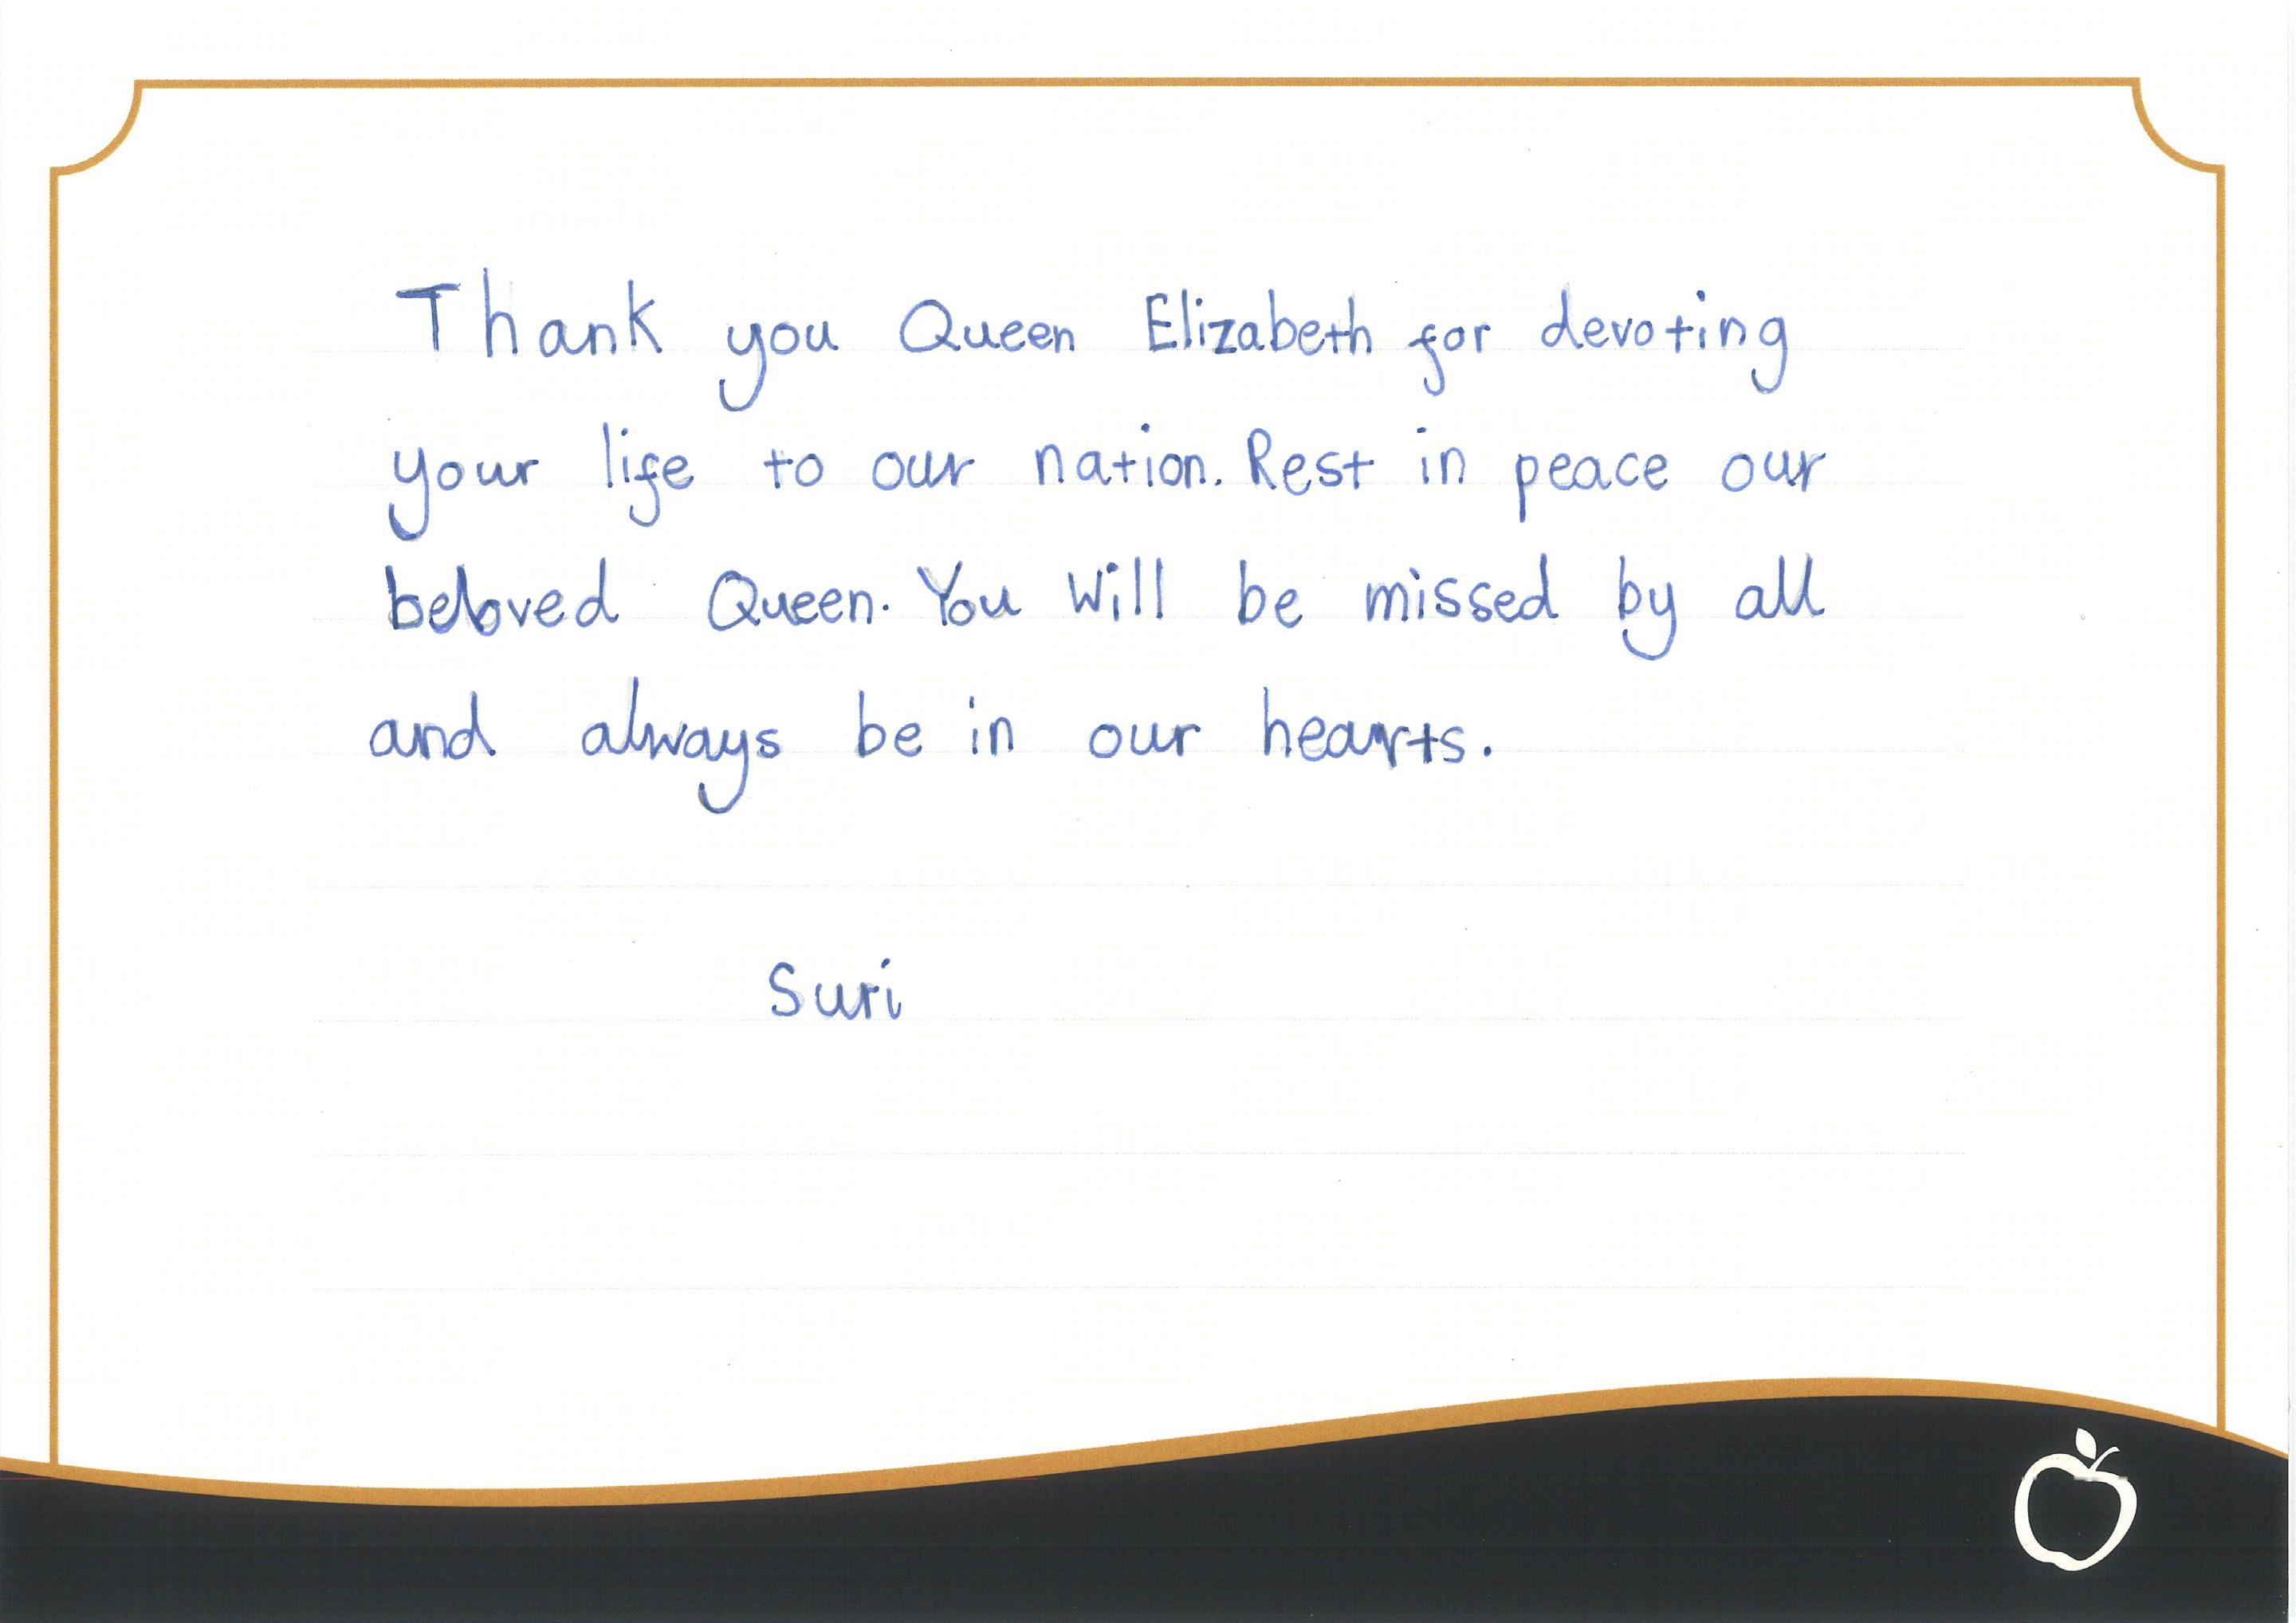 Thank you Queen Elizabeth for devoting
your life to our nation. Rest in peace our
beloved Queen. You Will be missed by all
and always be in our hearts.
Suri